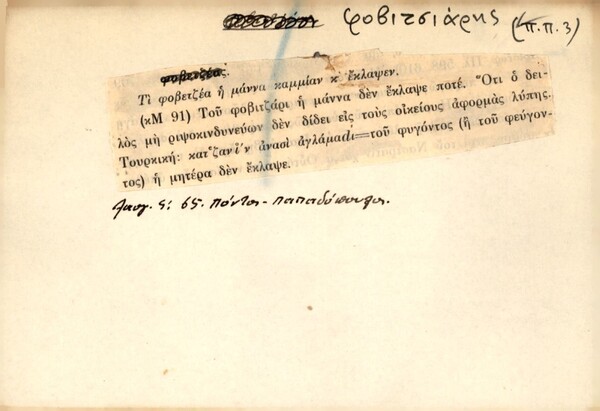 φοβιτσιάρης (π.π. 3)
φοβετζέας.
Τῆ φοβετζέα ἡ μάννα καμμίαν κ' ἔκλαψεν.
(κΜ 91) Τοῦ φοβιτζάρι ἡ μάννα δὲν ἔκλαψε ποτέ. Ὅτι ὁ δει-
λὸς μὴ ριψοκινδυνεύων δὲν δίδει εἰς τοὺς οἰκείους ἀφορμὰς λύπης.
Τουρκική: ἀνασὶ ἀγλάμαdι=τοῦ φυγόντος (ἢ τοῦ φεύγον-
τος) ἡ μητέρα δὲν ἔκλαψε.
Λαογ. 65. Πόντος - Παπαδόπουλος.